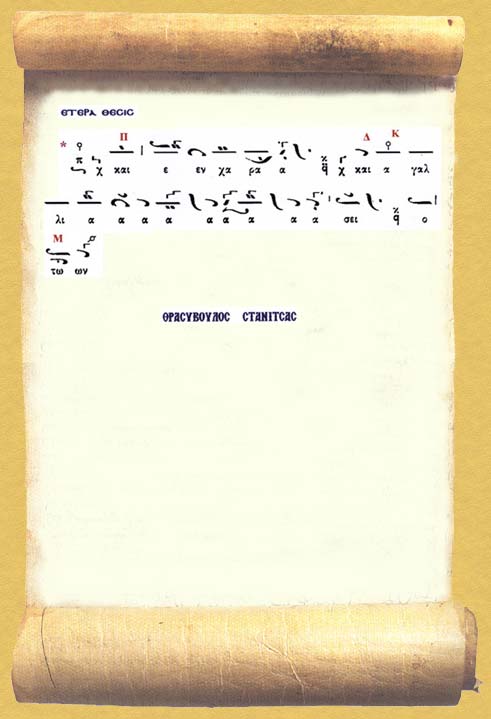 ΕΤΕΡΑ ΘΕСΙС
* Π Δ Κ
π χ και ε εν χα ρα α χ και α γαλ
λι α α α α α α α α α σει ο
Μ
τω ων
ΘΡΑСΥΒΟΥΛΟС СΤΑΝΙΤСΑС